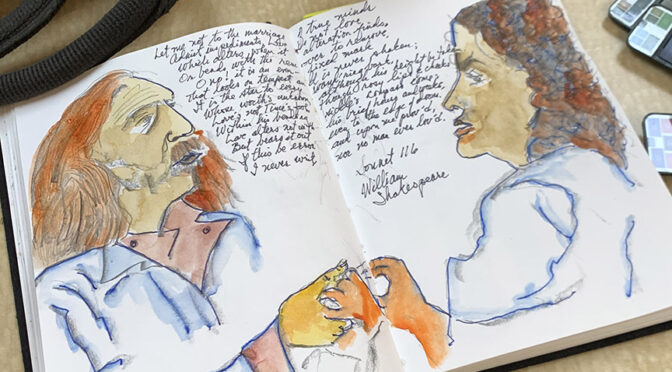 Let me not to the marriage true minds
Admit impediments, Love Is not love
Which alters when it alteration finds,
Or bends with the rem over to remove,
O no! it is an ever fixed mark
That looks on tempest & is never shaken;
It is the star to every wandring bark,
Whose worth's unknown although his height be taken
Love's not Time's fool though rosy lips & cheeks
Within his bending sickle's compass come;
Love alters not with his brief hours and weeks,
But bears it out even to the edge of doom
If this be error and upon me prov'd,
I never writ, nor no man ever lov'd.
Sonnet 116
William
Shakespeare